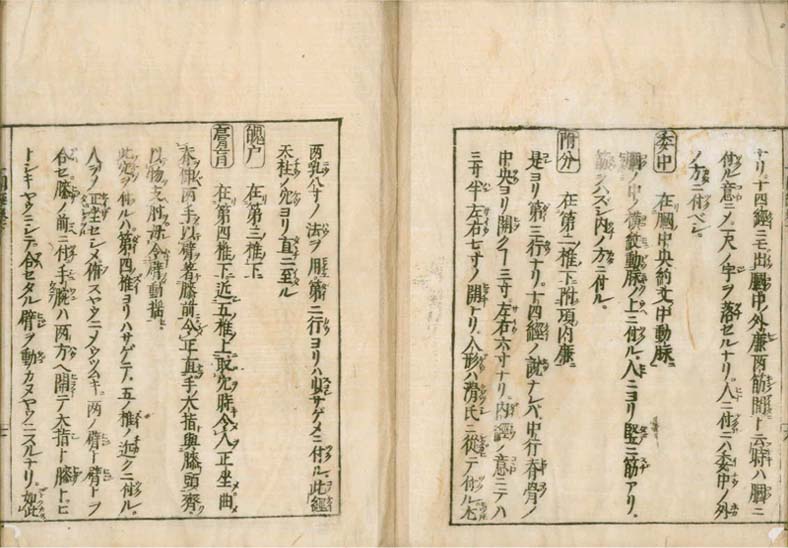 ナリ。十四經ニモ出膕中ノ外廉兩筋間ト云時ハ膕ニ
付ル意ニメ。一尺ノ字ヲ落セルナリ。人ニ付ニハ委中ノ外
ノ方ニ付ベシ。
委中 在膕中央約文中動脉
膕ノ中ノ横紋動脉ノ上ニ付ル。人ニヨリ竪ニ筋アリ。
筋ハズシ内ノ方ニ付ル。
附分 在第二椎下附項内廉
是ヨリ第三行ナリ。十四經ノ說ナレバ。中行脊骨ノ
中央ヨリ開ク┐三寸。左右六寸ナリ。内經ノ意ニテハ
三寸半左右七寸ノ開トリ。人形ハ滑氏ニ從テ付ル
兩乳八寸ノ法ヲ用。第二行ヨリハ サゲメニ付ル。此經
天柱ノ穴ヨリ直ニ至ル
魄户 在第三椎下
膏肓 在第四椎下近五椎上取穴時令人正坐曲
來伸兩手以臂著膝前令正直手大指與膝頭齊
以物支肘毋令臂動搖
此穴ヲ付ルハ第四椎ヨリハサゲテ。五椎ノ近クニ付ル。
人ヲメ正坐セシメ 兩ノ臂ト臂トヲ
合セ膝ノ前ニ付手腕ハ兩方ヘ開テ大指ト膝ト。ヒ
トシキヤウニシテ。合セタル臂ヲ動カヌヤウニスルナリ。如此